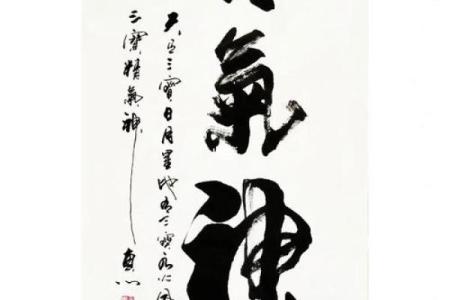 氣神
天有三寶日月星地有三寶水火風
三寶精氣神